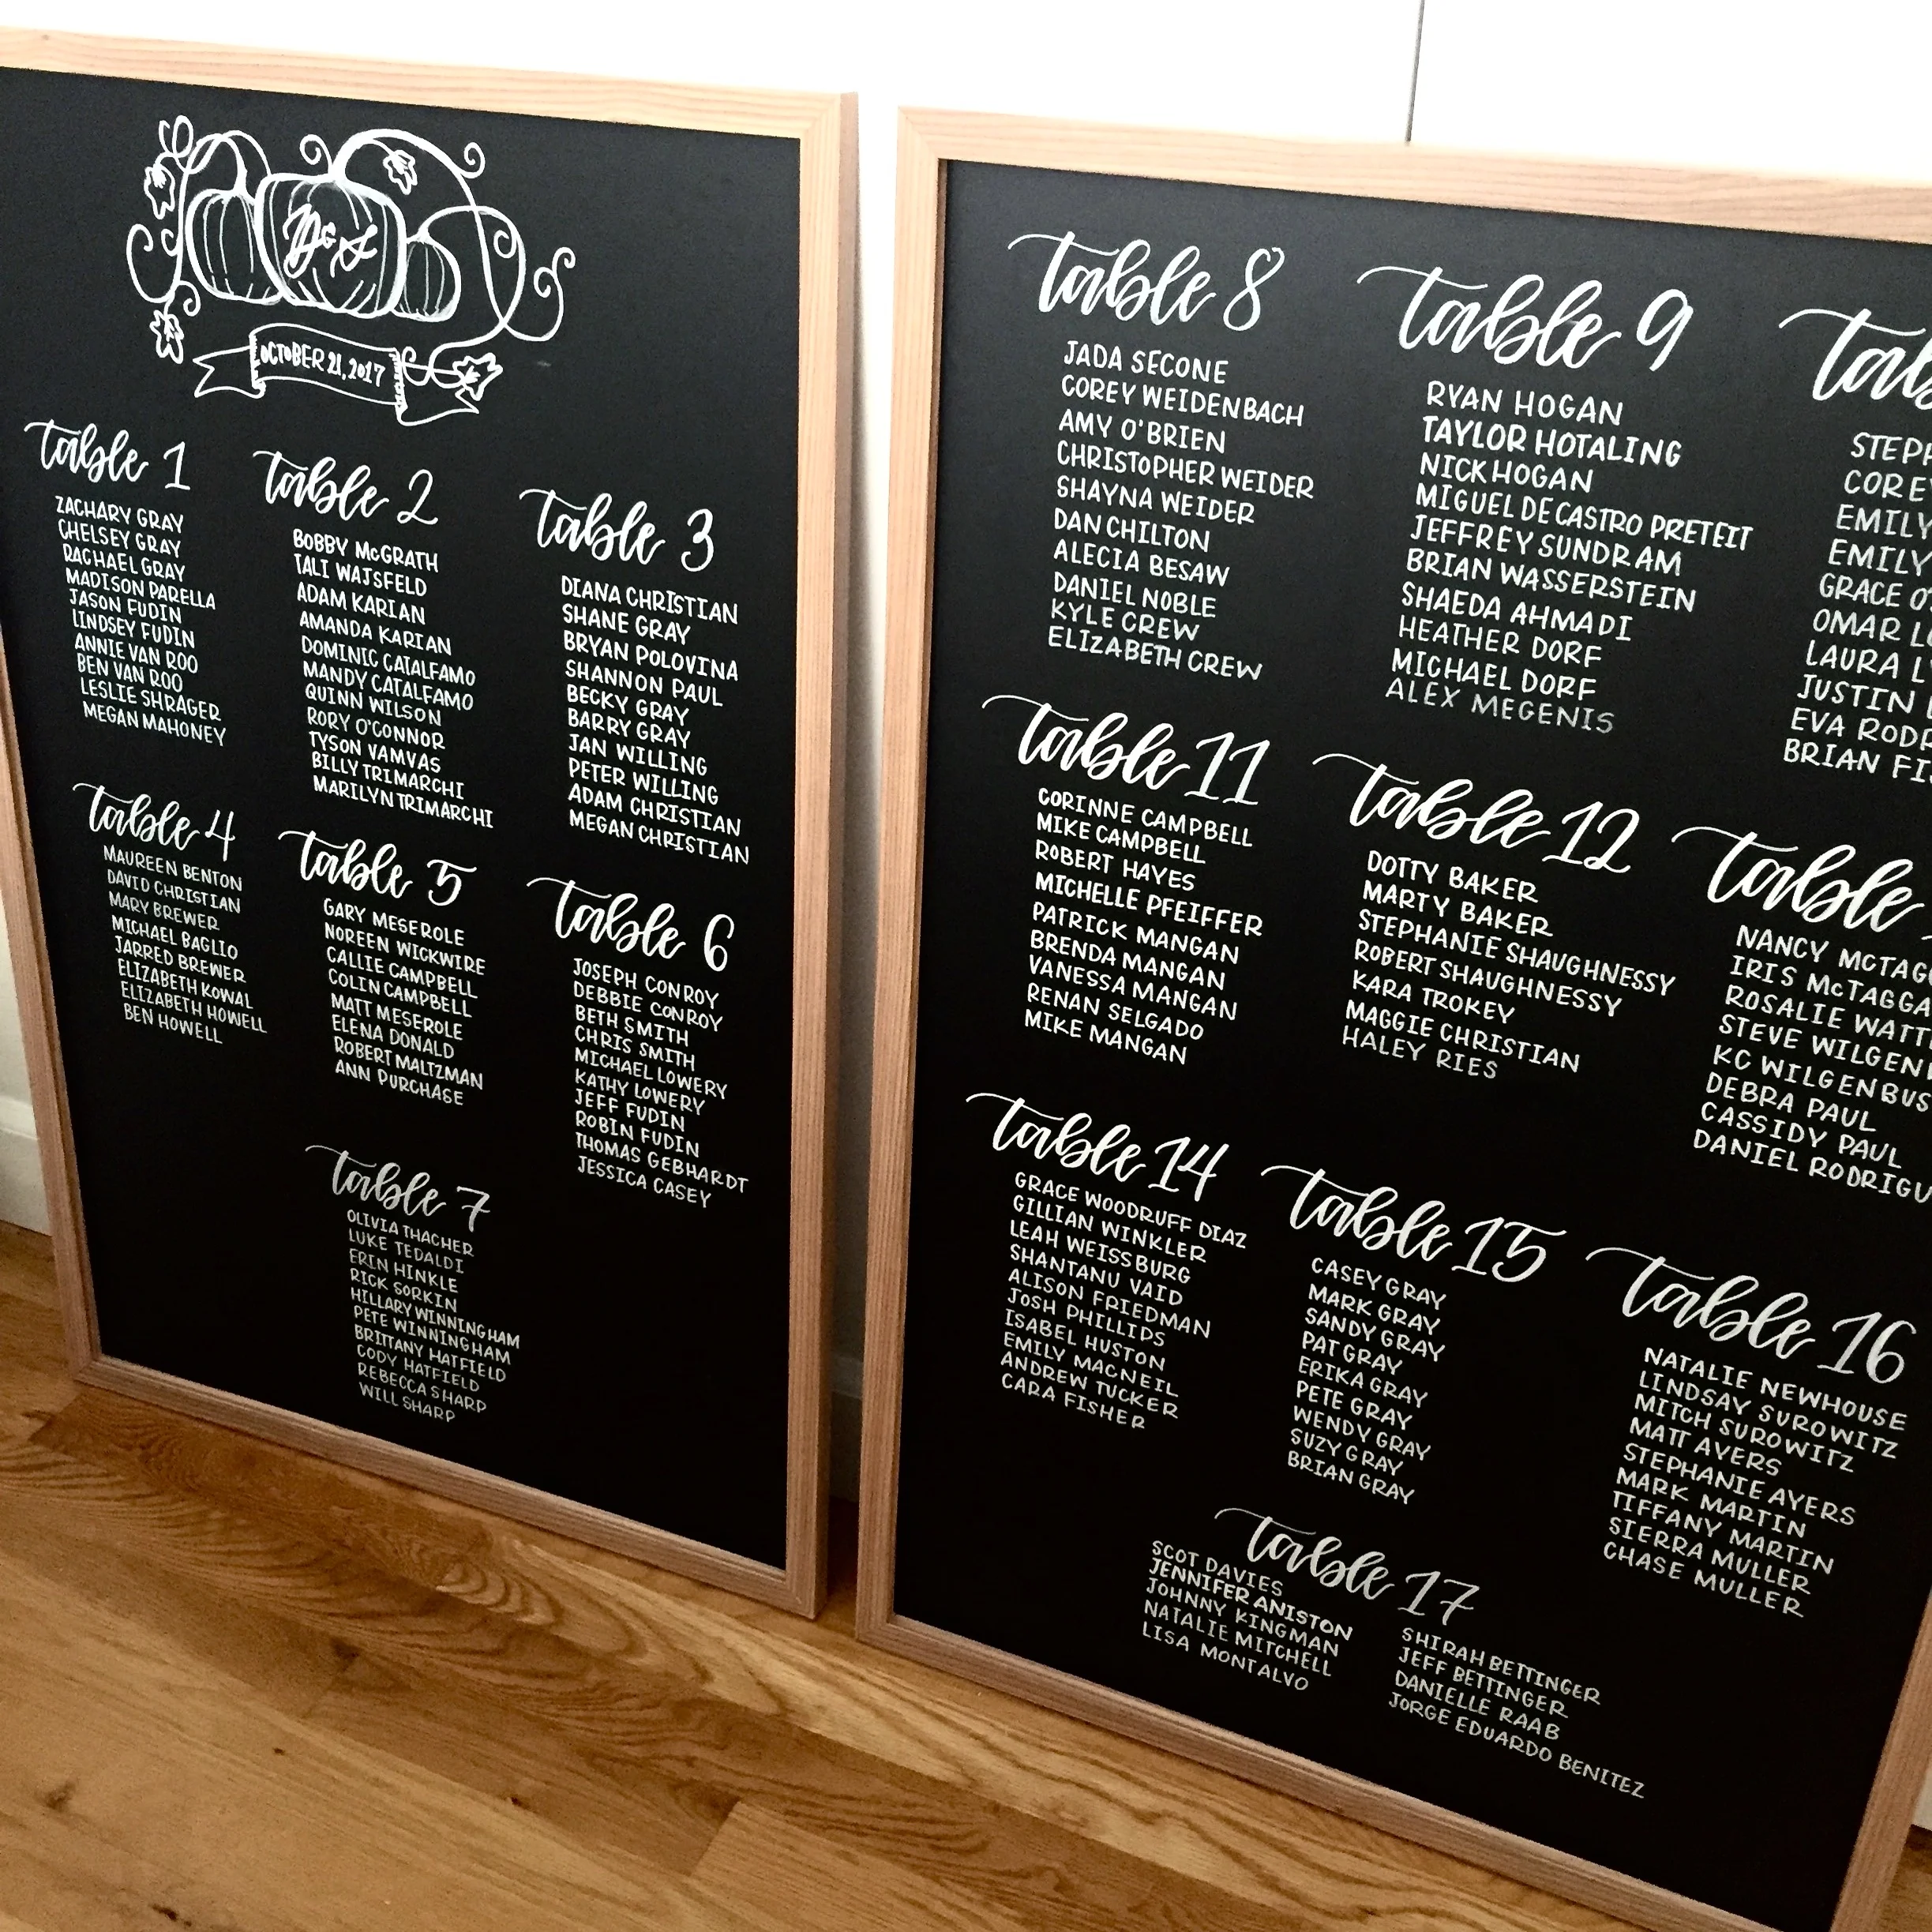 D & S
OCTOBER 21, 2017
table 1
ZACHARY GRAY
CHELSEY GRAY
RACHAEL GRAY
MADISON PARELLA
JASON FUDIN
LINDSEY FUDIN
ANNIE VAN ROO
BEN VAN ROO
LESLIE SHRAGER
MEGAN MAHONEY
table 2
BOBBY McGRATH
TALI WAJSFELD
ADAM KARIAN
AMANDA KARIAN
DOMINIC CATALFAMO
MANDY CATALFAMO
QUINN WILSON
RORY O'CONNOR
TYSON VAMVAS
BILLY TRIMARCHI
MARILYN TRIMARCHI
table 3
DIANA CHRISTIAN
SHANE GRAY
BRYAN POLOVINA
SHANNON PAUL
BECKY GRAY
BARRY GRAY
JAN WILLING
PETER WILLING
ADAM CHRISTIAN
MEGAN CHRISTIAN
table 4
MAUREEN BENTON
DAVID CHRISTIAN
MARY BREWER
MICHAEL BAGLIO
JARRED BREWER
ELIZABETH KOWAL
ELIZABETH HOWELL
BEN HOWELL
table 5
GARY MESEROLE
NOREEN WICKWIRE
CALLIE CAMPBELL
COLIN CAMPBELL
MATT MESEROLE
ELENA DONALD
ROBERT MALTZMAN
ANN PURCHASE
table 6
JOSEPH CONROY
DEBBIE CONROY
BETH SMITH
CHRIS SMITH
MICHAEL LOWERY
KATHY LOWERY
JEFF FUDIN
ROBIN FUDIN
THOMAS GEBHARDT
JESSICA CASEY
table 7
OLIVIA THACHER
LUKE TEDALDI
ERIN HINKLE
RICK SORKIN
HILLARY WINNINGHAM
PETE WINNINGHAM
BRITTANY HATFIELD
CODY HATFIELD
REBECCA SHARP
WILL SHARP
table 8
JADA SECONE
COREY WEIDENBACH
AMY O'BRIEN
CHRISTOPHER WEIDER
SHAYNA WEIDER
DAN CHILTON
ALECIA BESAW
DANIEL NOBLE
KYLE CREW
ELIZABETH CREW
table 9
RYAN HOGAN
TAYLOR HOTALING
NICK HOGAN
MIGUEL DE CASTRO PRETEIT
JEFFREY SUNDRAM
BRIAN WASSERSTEIN
SHAEDA AHMADI
HEATHER DORF
MICHAEL DORF
ALEX MEGENIS
tab
STEPH
COREY
EMILY
EMILY
GRACE O'
OMAR L
LAURA L
JUSTIN
EVA RODR
BRIAN FI
table 11
CORINNE CAMPBELL
MIKE CAMPBELL
ROBERT HAYES
MICHELLE PFEIFFER
PATRICK MANGAN
BRENDA MANGAN
VANESSA MANGAN
RENAN SELGADO
MIKE MANGAN
table 12
DOTTY BAKER
MARTY BAKER
STEPHANIE SHAUGHNESSY
ROBERT SHAUGHNESSY
KARA TROKEY
MAGGIE CHRISTIAN
HALEY RIES
table
NANCY McTAG
IRIS McTAGGA
ROSALIE WATT
STEVE WILGEN
KC WILGENBUS
DEBRA PAUL
CASSIDY PAUL
DANIEL RODRIGU
table 14
GRACE WOODRUFF DIAZ
GILLIAN WINKLER
LEAH WEISSBURG
SHANTANU VAID
ALISON FRIEDMAN
JOSH PHILLIPS
ISABEL HUSTON
EMILY MACNEIL
ANDREW TUCKER
CARA FISHER
table 15
CASEY GRAY
MARK GRAY
SANDY GRAY
PAT GRAY
ERIKA GRAY
PETE GRAY
WENDY GRAY
SUZY GRAY
BRIAN GRAY
table 16
NATALIE NEWHOUSE
LINDSAY SUROWITZ
MITCH SUROWITZ
MATT AYERS
STEPHANIE AYERS
MARK MARTIN
TIFFANY MARTIN
SIERRA MULLER
CHASE MULLER
table 17
SCOT DAVIES
JENNIFER ANISTON
JOHNNY KINGMAN
NATALIE MITCHELL
LISA MONTALVO
SHIRAH BETTINGER
JEFF BETTINGER
DANIELLE RAAB
JORGE EDUARDO BENITEZ